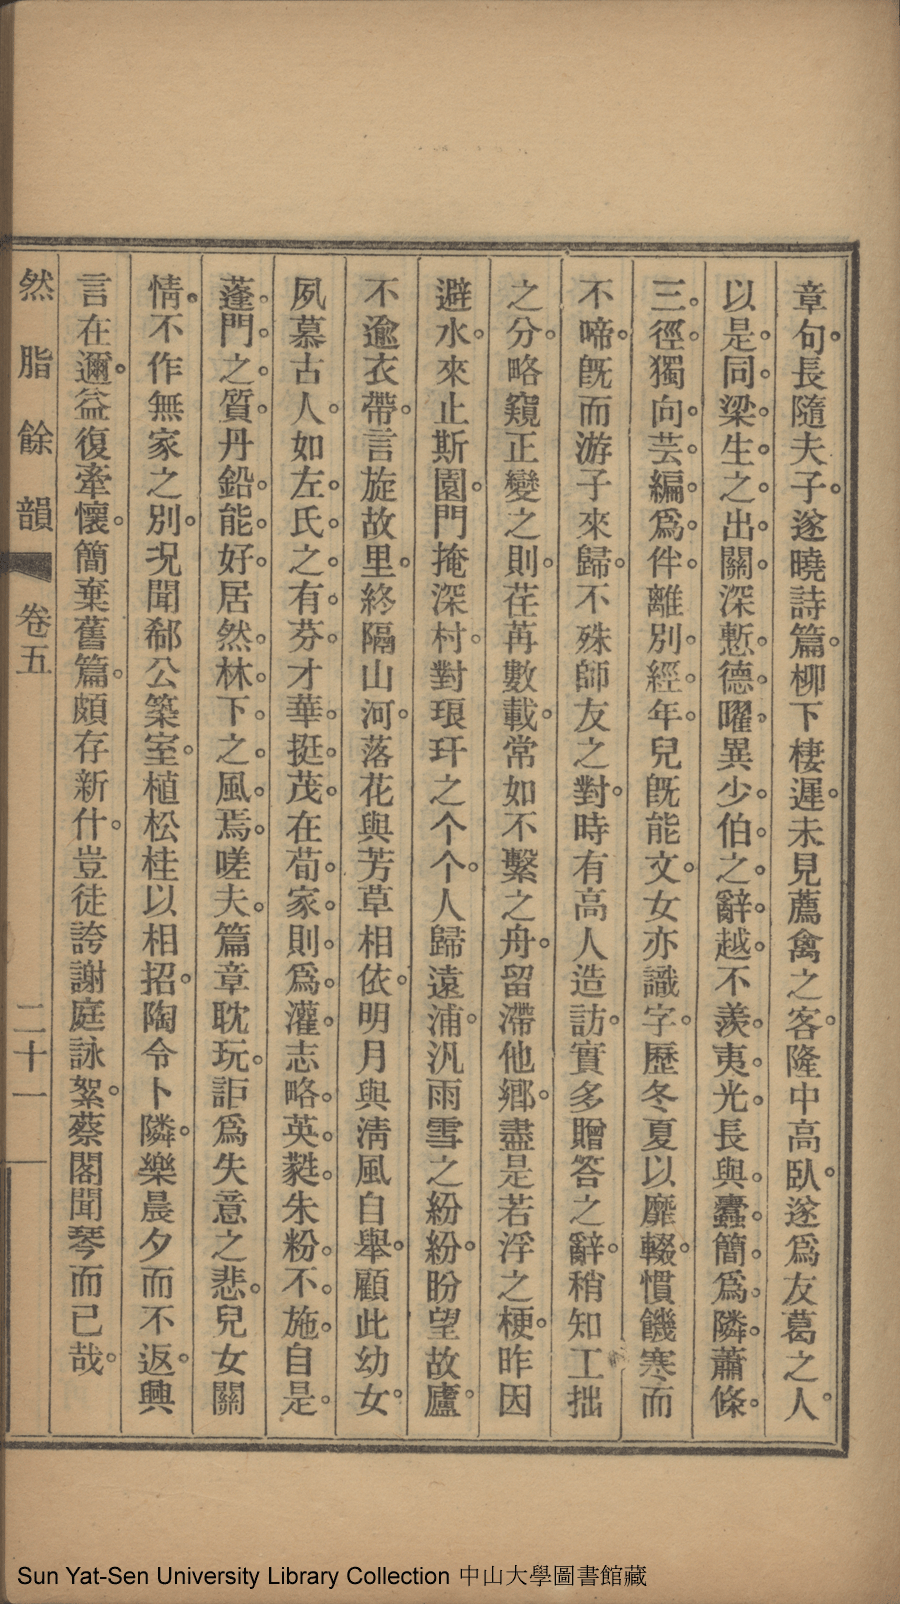 章句。長隨夫子。遂曉詩篇。柳下棲遲。未見薦禽之客。隆中高臥。遂爲友葛之人。
以是。同梁生之出關。深慙德曜。異少伯之辭越。不羨夷光。長與蠹簡爲隣。蕭條
三徑。獨向芸編爲伴。離別經年。兒旣能文。女亦識字。歷冬夏以靡輟。慣饑寒而
不啼。旣而游子來歸。不殊師友之對。時有高人造訪。實多贈答之辭。稍知工拙
之分。略窺正變之則。荏苒數載。常如不繫之舟。留滯他鄉。盡是若浮之梗。昨因
避水。來止斯園。門掩深村。對琅玕之个个。人歸遠浦。汎雨雪之紛紛。盼望故廬。
不逾衣帶。言旋故里。終隔山河。落花與芳草相依。明月與淸風自舉。顧此幼女。
夙慕古人。如左氏之有芬。才華挺茂。在荀家則爲灌。志略英蕤。朱粉不施。自是
蓬門之質。丹鉛能好。居然林下之風焉。嗟夫。篇章耽玩。詎爲失意之悲。兒女關
情。不作無家之別。況聞郗公築室。植松桂以相招。陶令卜隣。樂晨夕而不返。興
言在邇。益復牽懷。簡棄舊篇。頗存新什。豈徒誇謝庭詠絮。蔡閣聞琴而已哉。
然脂餘韻 卷五 二十一
Sun Yat-Sen University Library Collection 中山大學圖書館藏